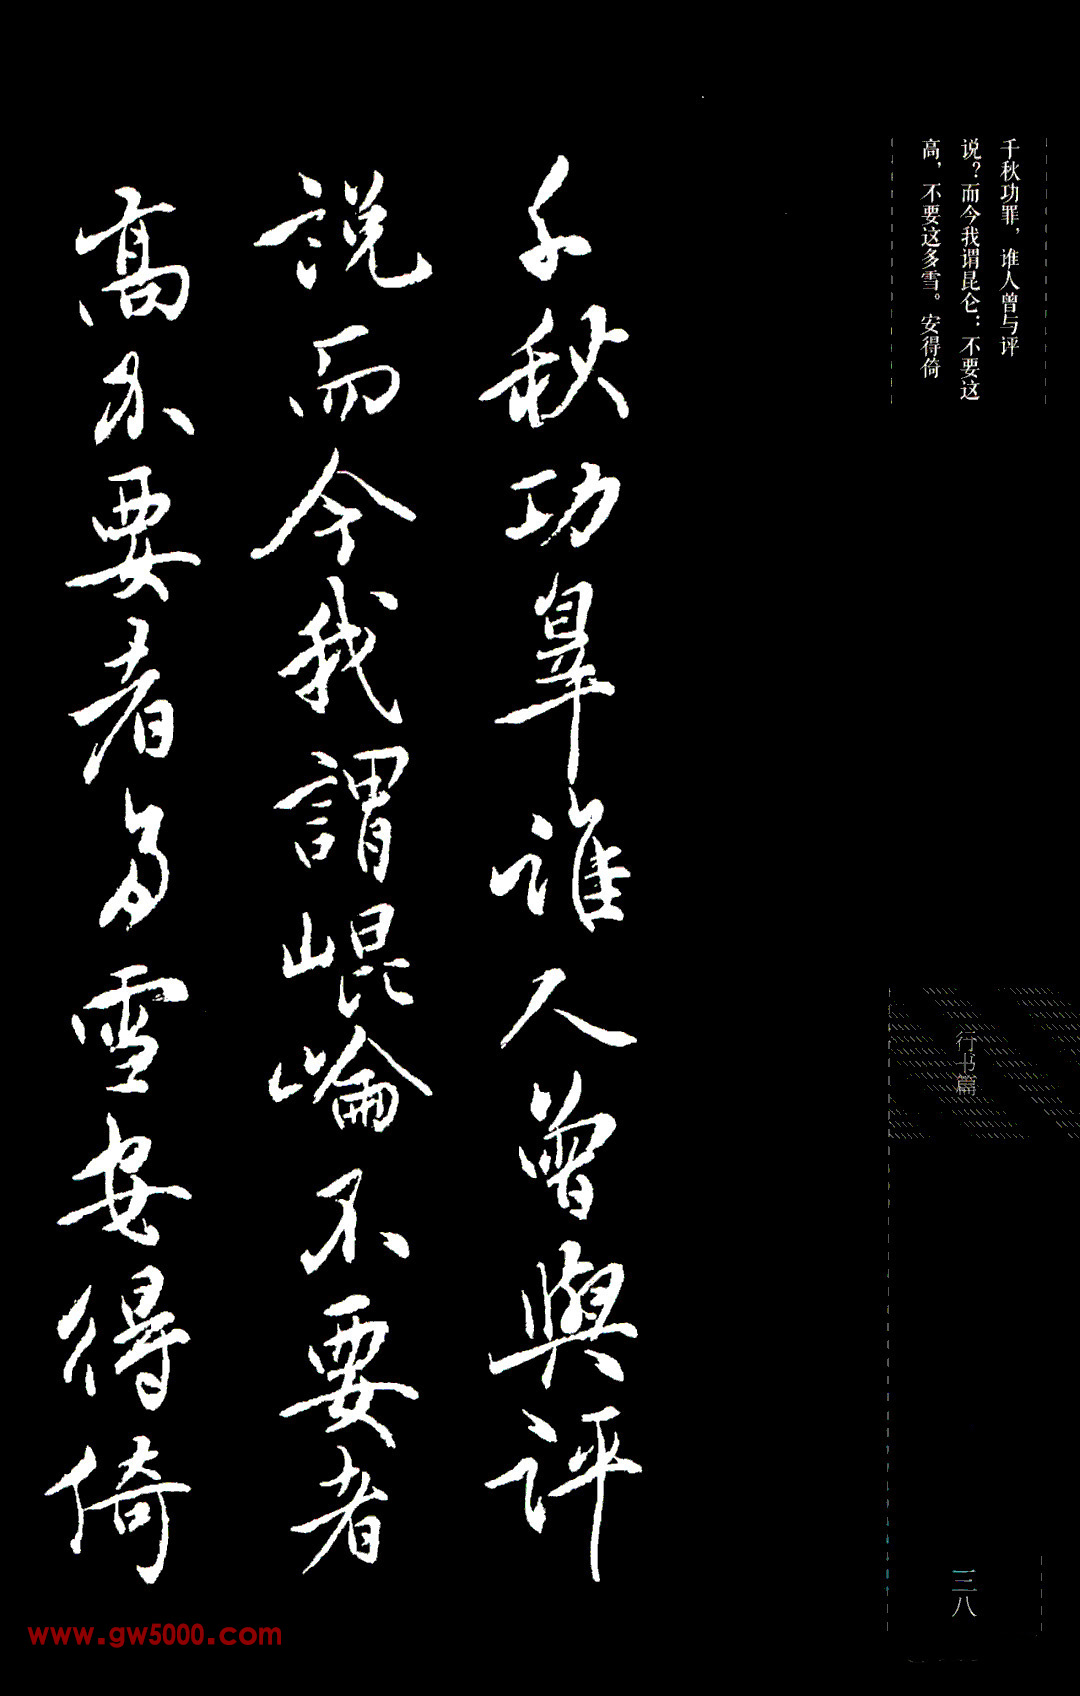 千秋功罪，谁人曾与评
说？而今我谓昆仑：不要这
高，不要这多雪。安得倚
千秋功辠誰人曾與評
説而今我謂崐崘不要者
高不要者多雪安得倚
行书篇
三八
www.gw5000.com